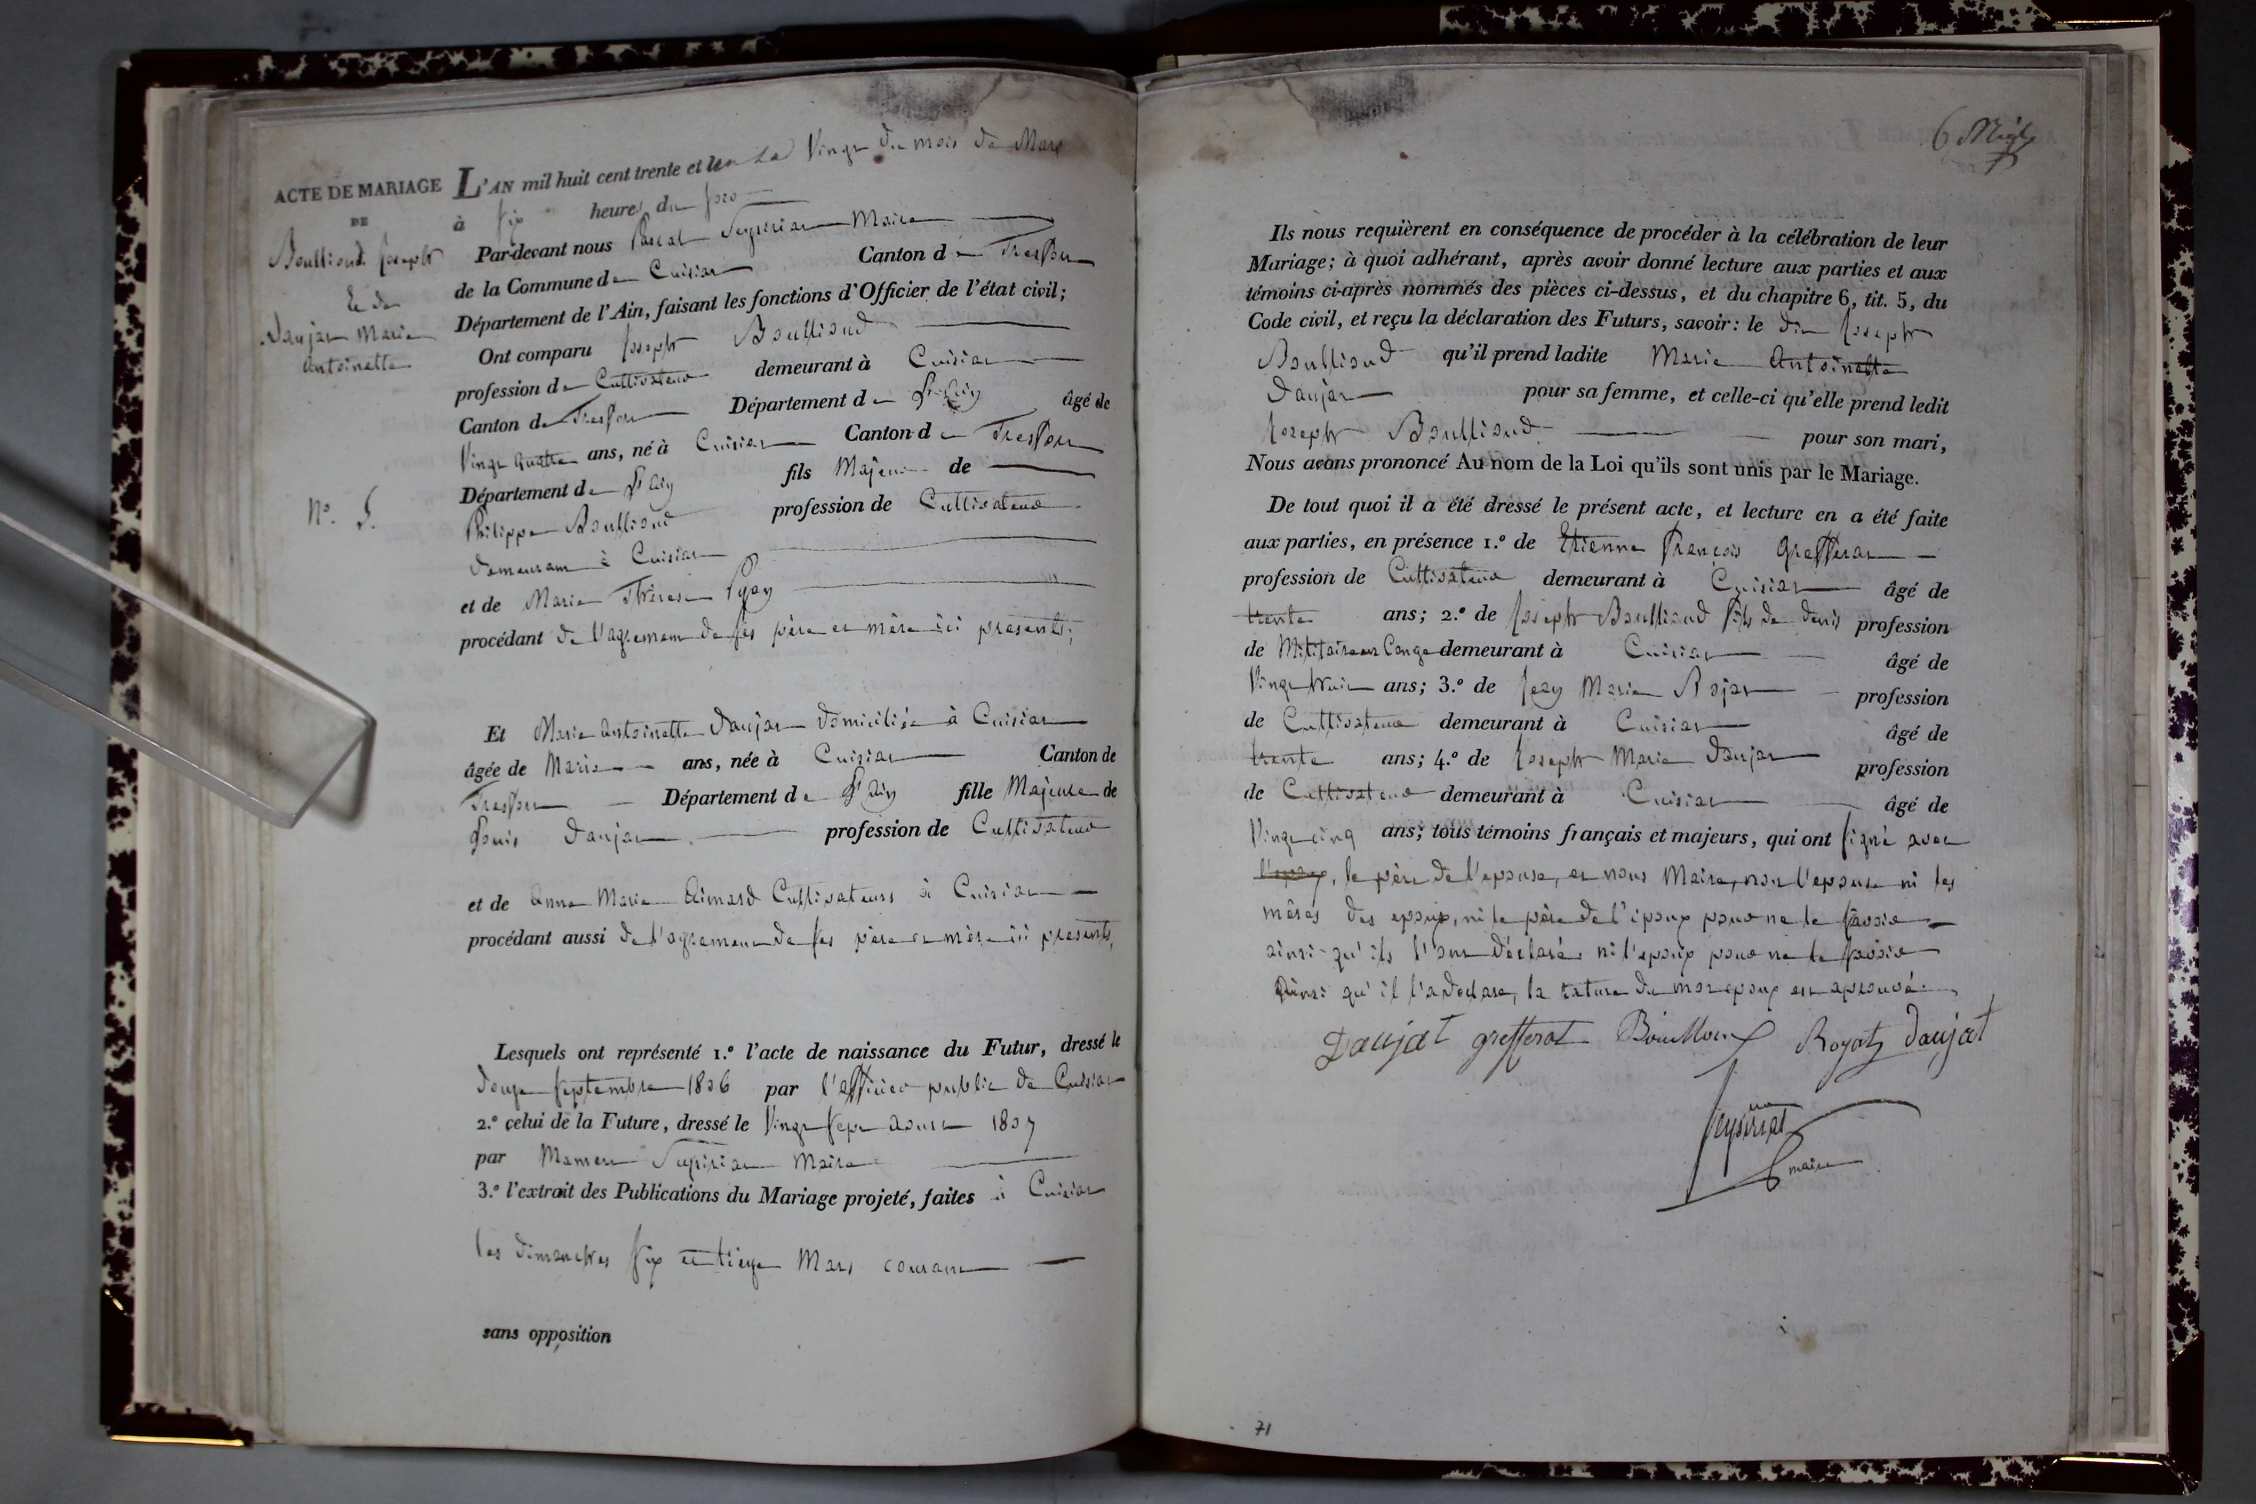 ACTE DE MARIAGE
DE
Boulliond Joseph
Et de
Daujat Marie
Antoinette
N.o 5.
L'AN mil huit cent trente et un Le Vingt du mois de Mars
à six heures du soir
Par-devant nous Pascal Seyssiriat Maire
de la Commune de Cuisiat Canton de Treffort
Département de l'Ain, faisant les fonctions d'Officier de l'état civil;
Ont comparu Joseph Boulliond
profession de Cultivateur demeurant à Cuisiat
Canton de Treffort Département de l'Ain âgé de
Vingt quatre ans, né à Cuisiat Canton de Treffort
Département de l'Ain fils Majeur de
Philippe Boulliond profession de Cultivateur
demeurant à Cuisiat
et de Marie Thérèse
procédant de l'agrement de ses père et mère ici présents;
Et Marie Antoinette Daujat domiciliée à Cuisiat
âgée de ans, née à Cuisiat Canton de
Treffort Département de l'Ain fille Majeure de
Louis Daujat profession de Cultivateur
et de Anne Marie Eimard Cultivateurs à Cuisiat
procédant aussi de l'agrement de ses père et mère ici présents,
Lesquels ont représenté 1.o l'acte de naissance du Futur, dressé le
douze septembre 1806 par l'officier public de Cuisiat
2.o celui de la Future, dressé le Vingt sept Aoust 1807
par Maire
3.o l'extrait des Publications du Mariage projeté, faites à Cuisiat
les dimanches six et treize Mars courant
sans opposition
6
Ils nous requièrent en conséquence de procéder à la célébration de leur
Mariage; à quoi adhérant, après avoir donné lecture aux parties et aux
témoins ci-après nommés des pièces ci-dessus, et du chapitre 6, tit. 5, du
Code civil, et reçu la déclaration des Futurs, savoir: le dit Joseph
Boulliond qu'il prend ladite Marie Antoinette
Daujat pour sa femme, et celle-ci qu'elle prend ledit
Joseph Boulliond pour son mari,
Nous avons prononcé Au nom de la Loi qu'ils sont unis par le Mariage.
De tout quoi il a été dressé le présent acte, et lecture en a été faite
aux parties, en présence 1.o de Etienne François Grefferat
profession de Cultivateur demeurant à Cuisiat âgé de
trente ans; 2.o de Joseph Boulliond fils de denis profession
de Militaire en Conge demeurant à Cuisiat âgé de
Vingt huit ans; 3.o de Jean Marie Rojat profession
de Cultivateur demeurant à Cuisiat âgé de
trente ans; 4.o de Joseph Marie Daujat profession
de Cultivateur demeurant à Cuisiat âgé de
Vingt cinq ans; tous témoins français et majeurs, qui ont signé avec
l'epoux, le père de l'epouse, et nous Maire, non l'epouse ni les
mères des epoux, ni le père de l'epoux pour ne le savoir
ainsi qu'ils l'ont déclaré ni l'epoux pour ne le savoir
Ainsi qu'il l'a declaré, la rature du mot epoux est aprouvé
Daujat grefferat Boullioux Royat Daujat
Seyssiriat
maire
71